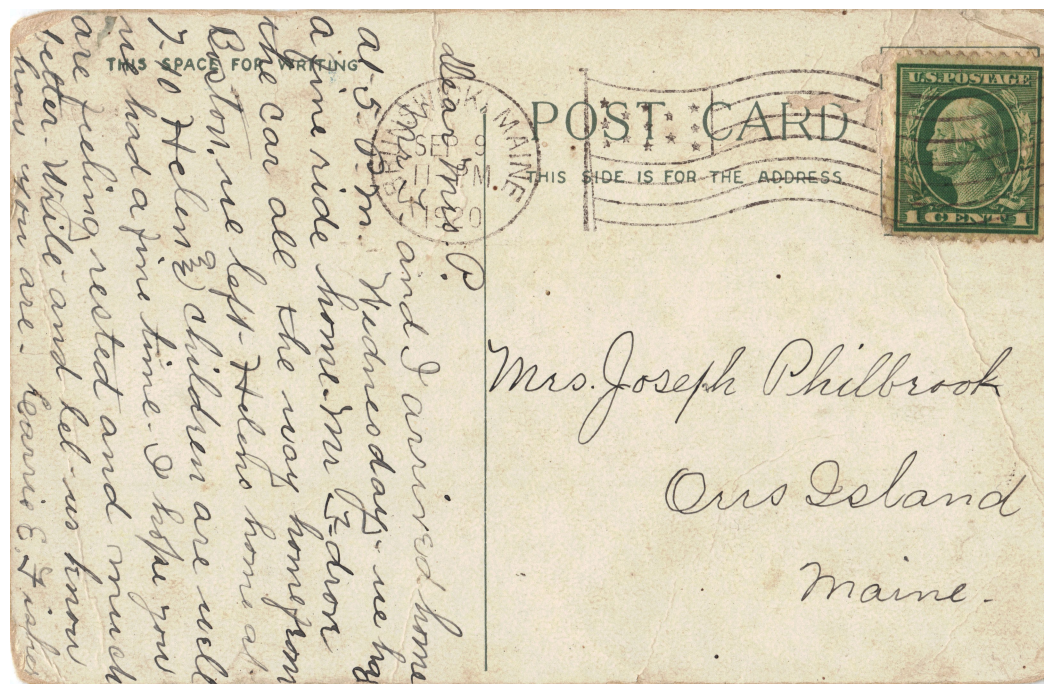 THIS SPACE FOR WRITING
POST CARD
THIS SIDE IS FOR THE ADDRESS
U.S. POSTAGE
1 CENT 1
BRUNSWICK, MAINE
SEP 9
PM
Mrs. Joseph Philbrook
Orrs Island
Maine.
Dear Mrs. P.
Mr. F. and I arrived home
at 5-30 P.M. Wednesday - we had
a fine ride home. Mr F- drove
the car all the way home from
Boston, we left Helens home at
7-10 Helen & children are well
we had a fine time - I hope you
are feeling rested and much
better - Write and let us know
how you are - Carrie E. Fisher